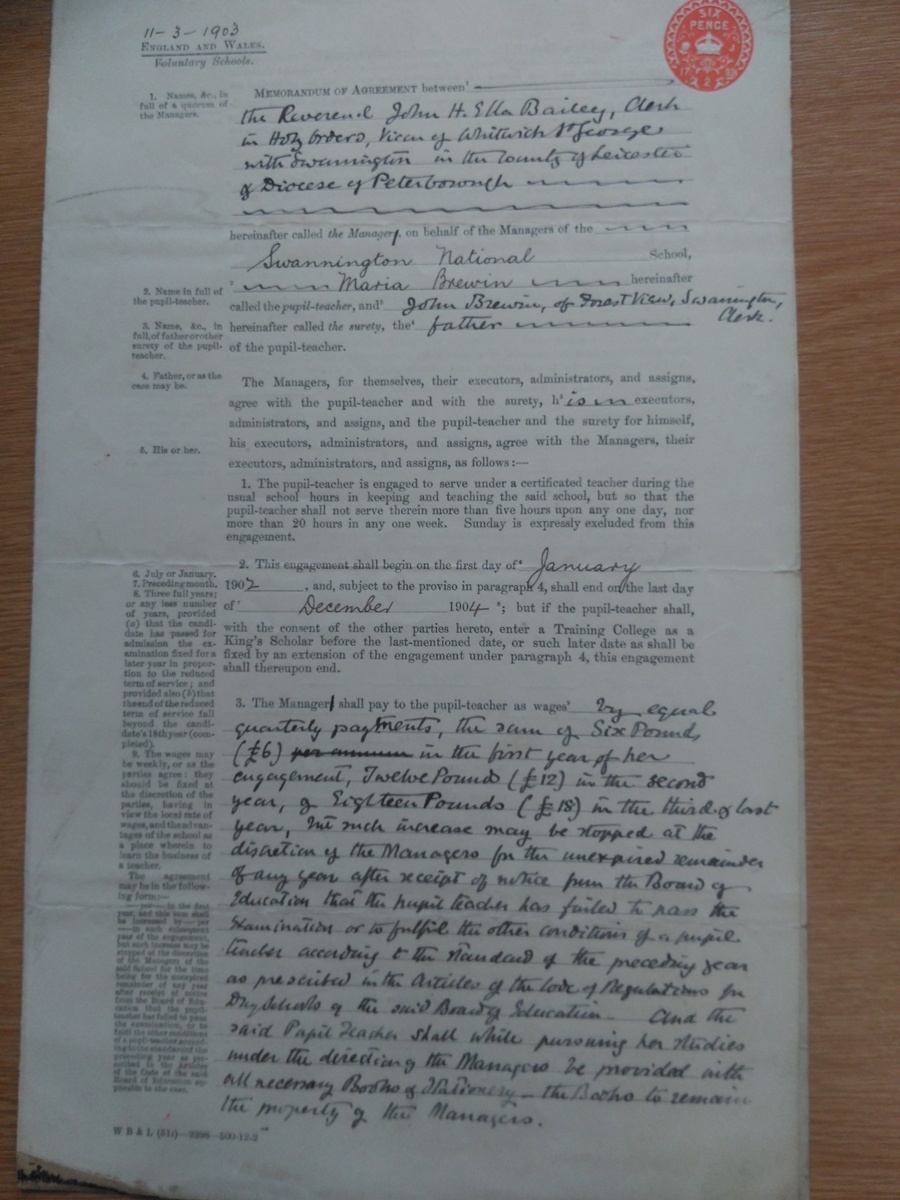 11-3-1903
ENGLAND AND WALES.
Voluntary Schools.
SIX
PENCE
1. Names, &c., in
full of a quorum of
the Managers.
MEMORANDUM OF AGREEMENT between¹
the Reverend John H. Ella Bailey, Clerk
in Holy Orders, Vicar of Whitwick St George
with Swannington in the County of Leicester
& Diocese of Peterborough
hereinafter called the Manager, on behalf of the Managers of the
Swannington National School,
2. Name in full of
the pupil-teacher.
² Maria Brewin hereinafter
called the pupil-teacher, and³ John Brewin, of Forest View, Swannington,
Clerk.
3. Name, &c., in
full, of father or other
surety of the pupil-
teacher.
hereinafter called the surety, the⁴ father
of the pupil-teacher.
4. Father, or as the
case may be.
The Managers, for themselves, their executors, administrators, and assigns,
agree with the pupil-teacher and with the surety, h⁵is executors,
administrators, and assigns, and the pupil-teacher and the surety for himself,
5. His or her.
his executors, administrators, and assigns, agree with the Managers, their
executors, administrators, and assigns, as follows:—
1. The pupil-teacher is engaged to serve under a certificated teacher during the
usual school hours in keeping and teaching the said school, but so that the
pupil-teacher shall not serve therein more than five hours upon any one day, nor
more than 20 hours in any one week. Sunday is expressly excluded from this
engagement.
6. July or January.
7. Preceding month.
8. Three full years;
or any less number
of years, provided
(a) that the candi-
date has passed for
admission the ex-
amination fixed for a
later year in propor-
tion to the reduced
term of service; and
provided also (b) that
the end of the reduced
term of service fall
beyond the candi-
date's 18th year (com-
pleted).
2. This engagement shall begin on the first day of⁶ January
1902, and, subject to the proviso in paragraph 4, shall end on the last day
of⁷ December 1904 ⁸; but if the pupil-teacher shall,
with the consent of the other parties hereto, enter a Training College as a
King's Scholar before the last-mentioned date, or such later date as shall be
fixed by an extension of the engagement under paragraph 4, this engagement
shall thereupon end.
9. The wages may
be weekly, or as the
parties agree: they
should be fixed at
the discretion of the
parties, having in
view the local rate of
wages, and the advan-
tages of the school as
a place wherein to
learn the business of
a teacher.
The agreement
may be in the follow-
ing form:—
— per — in the first
year, and this sum shall
be increased by — per
— in each subsequent
year of the engagement,
but such increase may be
stopped at the discretion
of the Managers of the
said School for the time
being for the unexpired
remainder of any year
after receipt of notice
from the Board of Edu-
cation that the pupil-
teacher has failed to pass
the examination, or to
fulfil the other conditions
of a pupil-teacher accord-
ing to the standard of the
preceding year as pre-
scribed in the Articles
of the Code of the said
Board of Education ap-
plicable to the case.
3. The Manager shall pay to the pupil-teacher as wages⁹ by equal
quarterly payments, the sum of Six Pounds
(£6) per annum in the first year of her
engagement, Twelve Pounds (£12) in the second
year, & Eighteen Pounds (£18) in the third & last
year, but such increase may be stopped at the
discretion of the Managers for the unexpired remainder
of any year after receipt of notice from the Board of
Education that the pupil teacher has failed to pass the
examination or to fulfil the other conditions of a pupil
teacher according to the standard of the preceding year
as prescribed in the Articles of the Code of Regulations for
Day Schools of the said Board of Education. And the
said Pupil Teacher shall while pursuing her studies
under the direction of the Managers be provided with
all necessary Books & Stationery – the Books to remain
the property of the Managers.
W B & L (51t)—2398—500-12-2